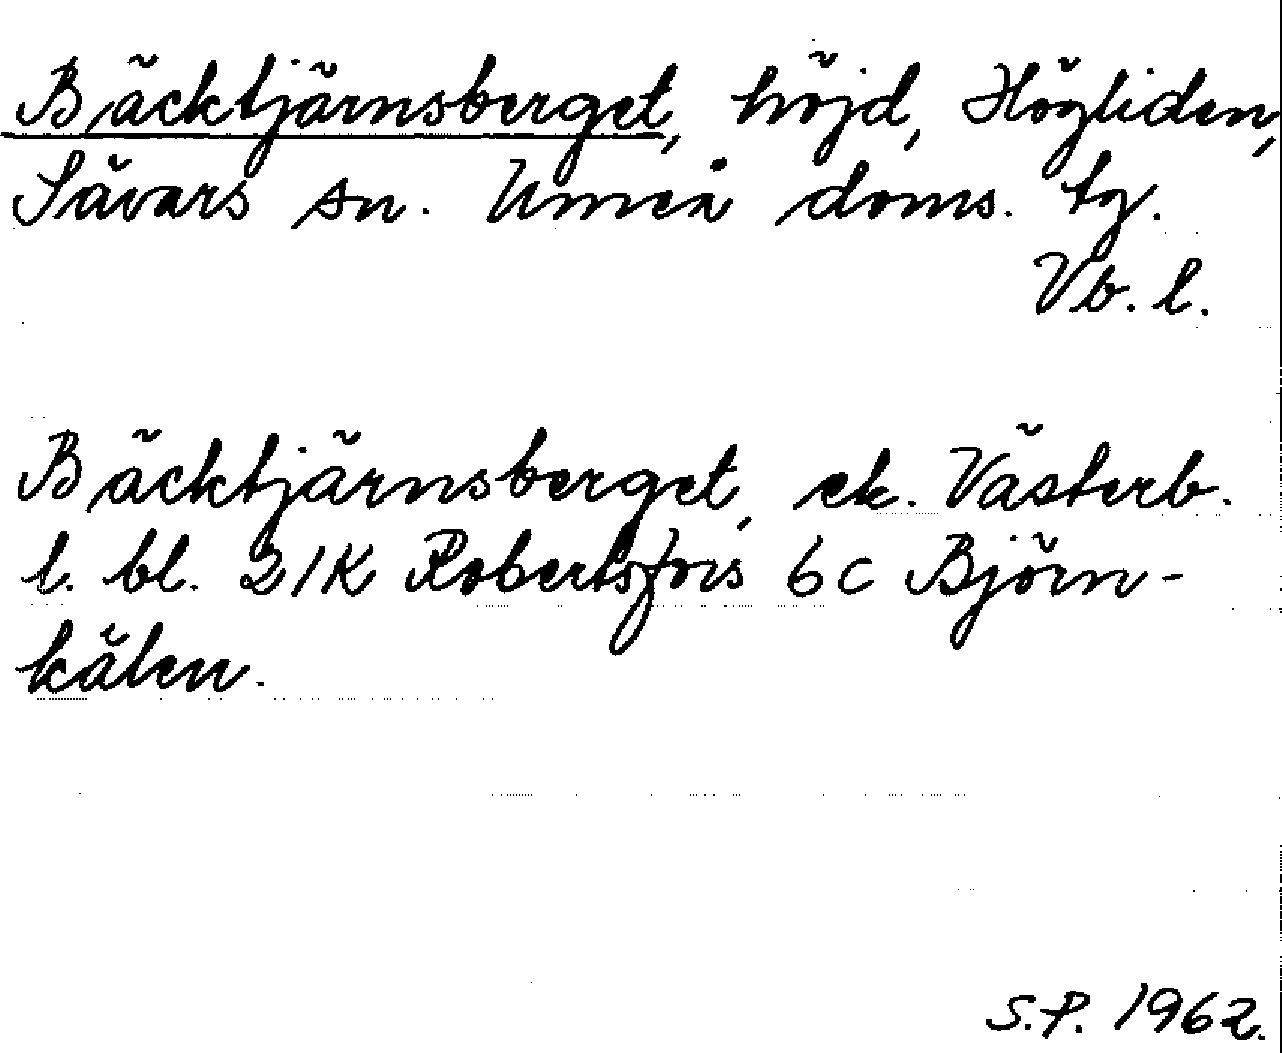 Bäcktjärnsberget, höjd, Högliden,
Sävars sn. Umeå doms. tg.
Vb. l.
Bäcktjärnsberget, ek. Västerb.
l. bl. 21K Robertsfors 6c Björn-
kälen.
S.P. 1962.